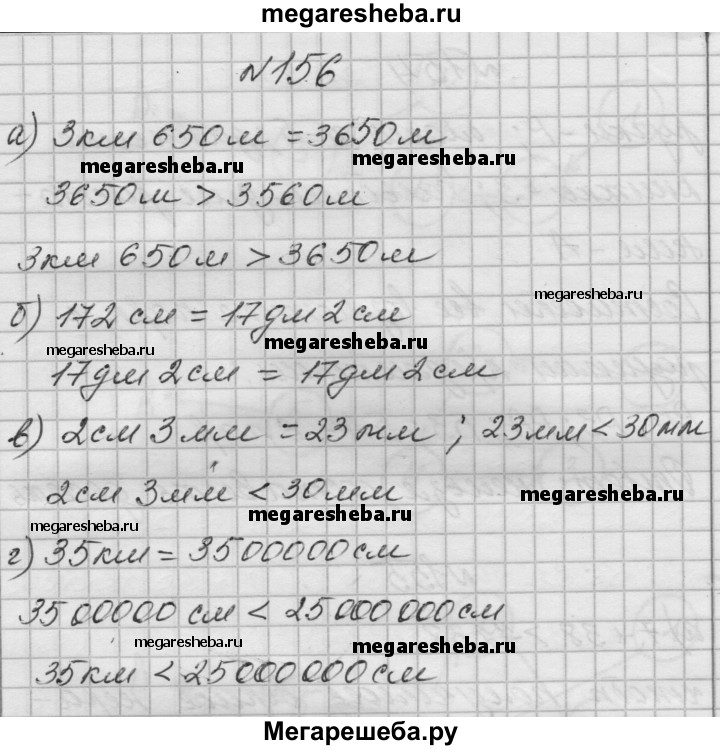 megaresheba.ru
№156
а) 3км 650м = 3650м
megaresheba.ru megaresheba.ru
3650м > 3560м
3км 650м > 3650м
megaresheba.ru
б) 172 см = 17дм 2см
megaresheba.ru megaresheba.ru
17дм 2см = 17дм 2см
в) 2см 3мм = 23мм ; 23мм < 30мм
2см 3мм < 30мм megaresheba.ru
megaresheba.ru megaresheba.ru
г) 35км = 3500000см
3500000 см < 25000000см
megaresheba.ru megaresheba.ru
35км < 25000000см
Мегарешеба.ру